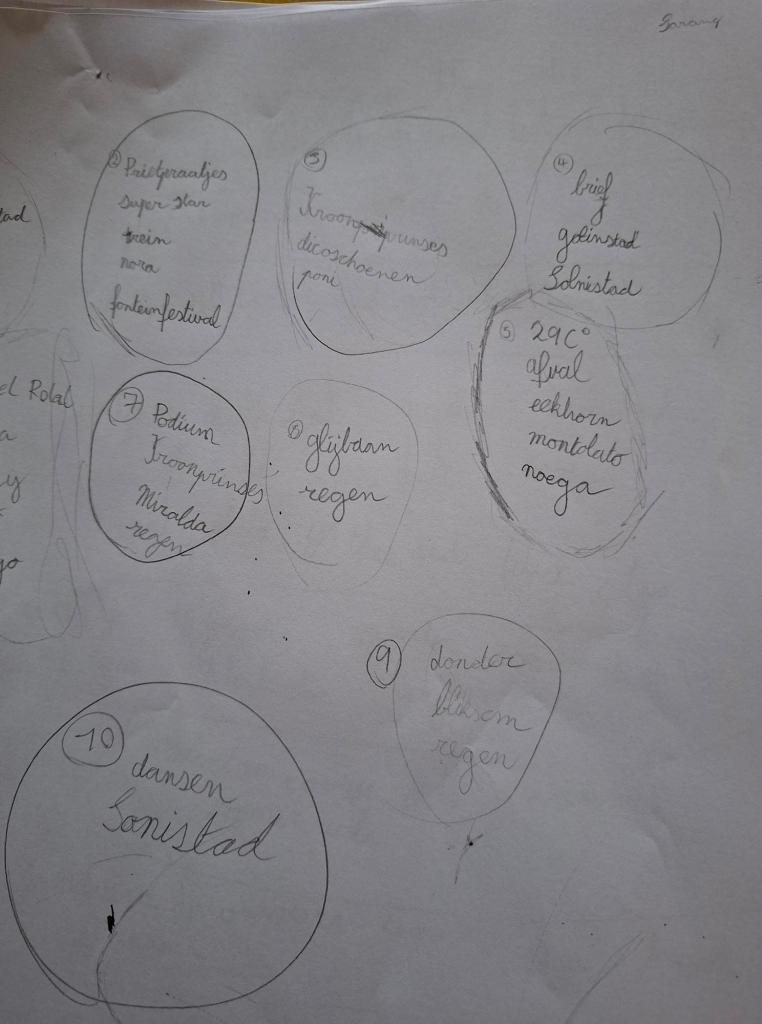 Sarang
tad
② Prietpraatjes
super star
trein
nora
fonteinfestival
③
Kroonprinses
dicoschoenen
poni
④ brief
golinstad
Solnistad
⑤ 29C°
afval
eekhorn
montolato
noega
el Rolal
a
y
yo
⑦ Podium
Kroonprinses
Miralda
regen
⑧ glijbaan
regen
⑨ donder
bliksem
regen
⑩
dansen
Sonistad